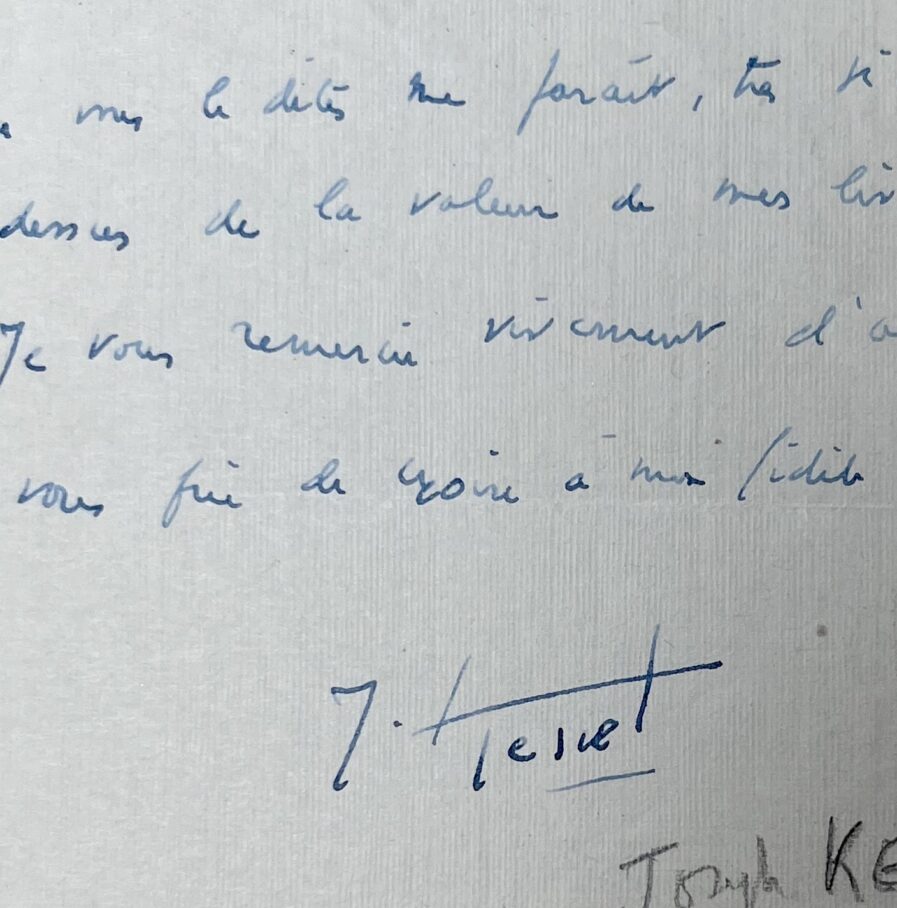 vous le dites me paraît, très si
dessus de la valeur de mes liv
Je vous remercie vivement d'a
vous prie de croire à mon fidèle
J. Kessel
Joseph KE